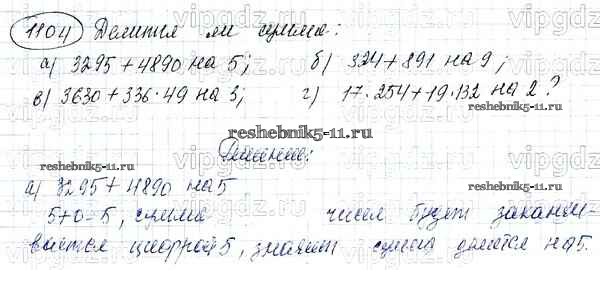 1104 Делится ли сумма:
а) 3295+4890 на 5; б) 324+891 на 9;
в) 3630+336·49 на 3; г) 17·254+19·132 на 2?
reshebnik5-11.ru
reshebnik5-11.ru reshebnik5-11.ru
Решение:
а) 3295+4890 на 5
5+0=5, сумма чисел будет заканчи-
ваться цифрой 5, значит сумма делится на 5.